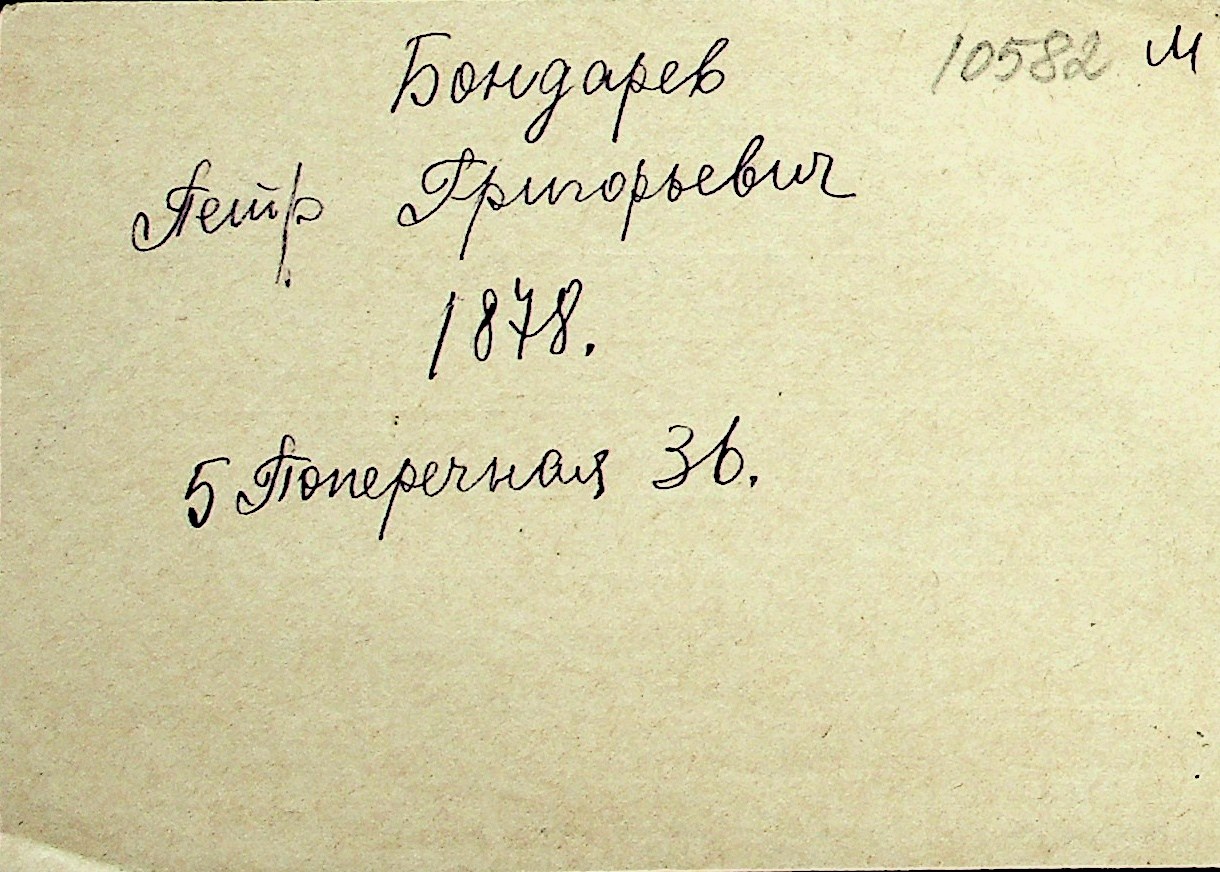 Бондарев 10582 М
Петр Григорьевич
1878.
5 Поперечная 36.